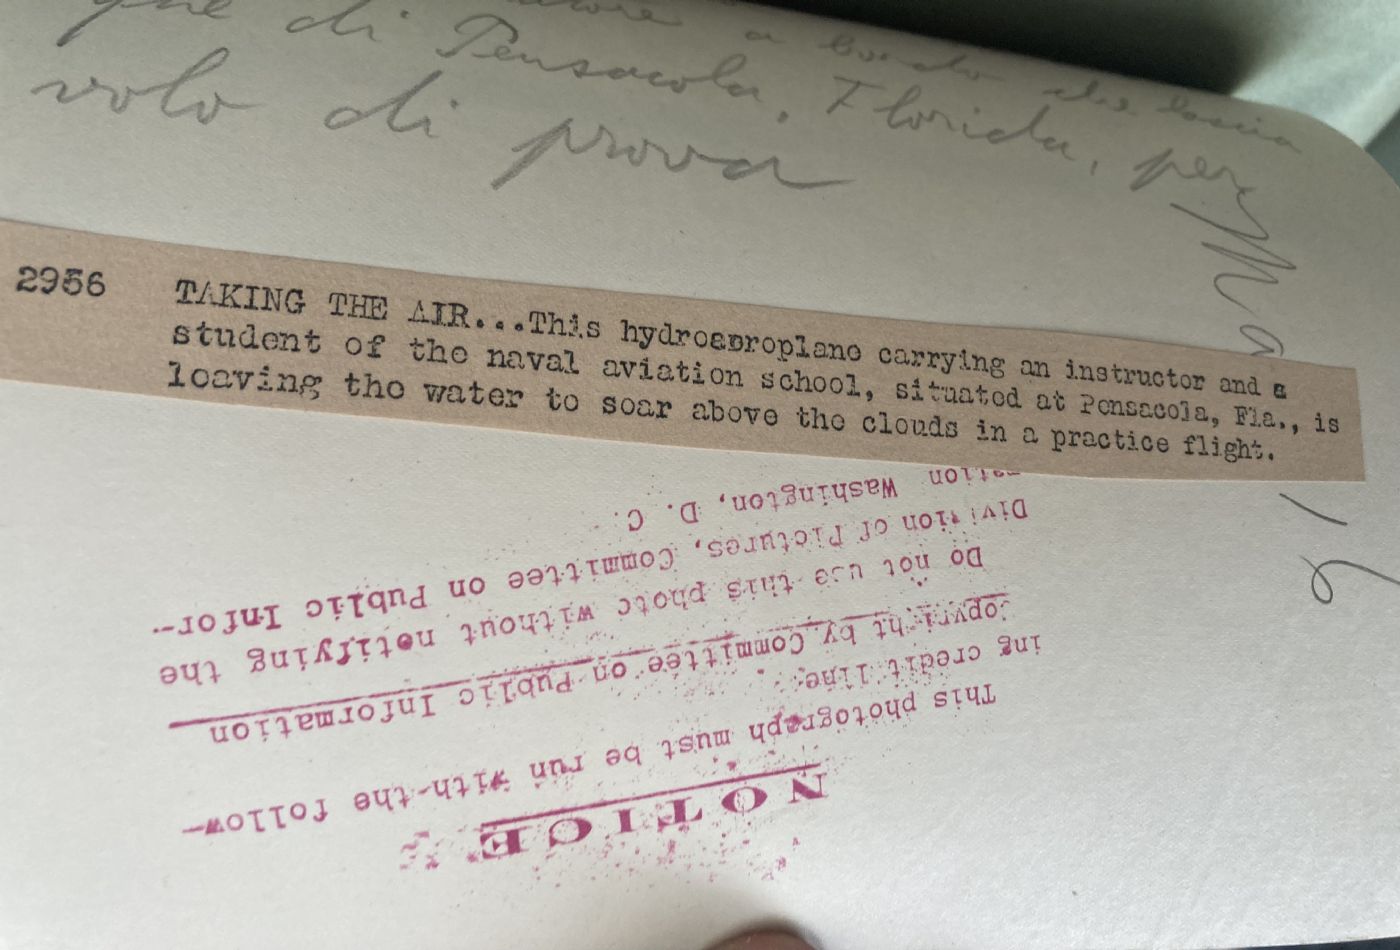 a bordo che lascia
que di Pensacola, Florida, per
volo di prova
2956 TAKING THE AIR...This hydroaeroplane carrying an instructor and a
student of the naval aviation school, situated at Pensacola, Fla., is
leaving the water to soar above the clouds in a practice flight.
NOTICE
This photograph must be run with the follow-
ing credit line.
Copyright by Committee on Public Information
Do not use this photo without notifying the
Division of Pictures, Committee on Public Infor-
mation Washington, D. C.